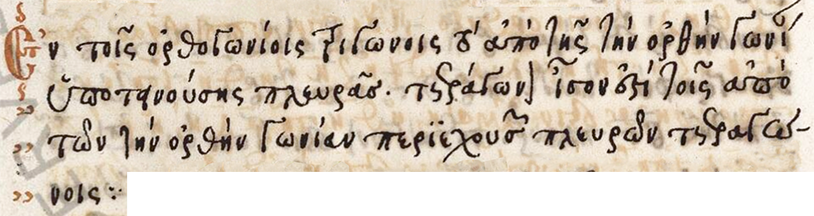 Ἐν τοῖς ὀρθογωνίοις τριγώνοις τὸ ἀπὸ τῆς τὴν ὀρθὴν γωνί
ὑποτεινούσης πλευρᾶς. τετράγων] ἴσον ἐστὶ τοῖς ἀπὸ
τῶν τὴν ὀρθὴν γωνίαν περιεχουσῶν πλευρῶν τετραγώ-
νοις: